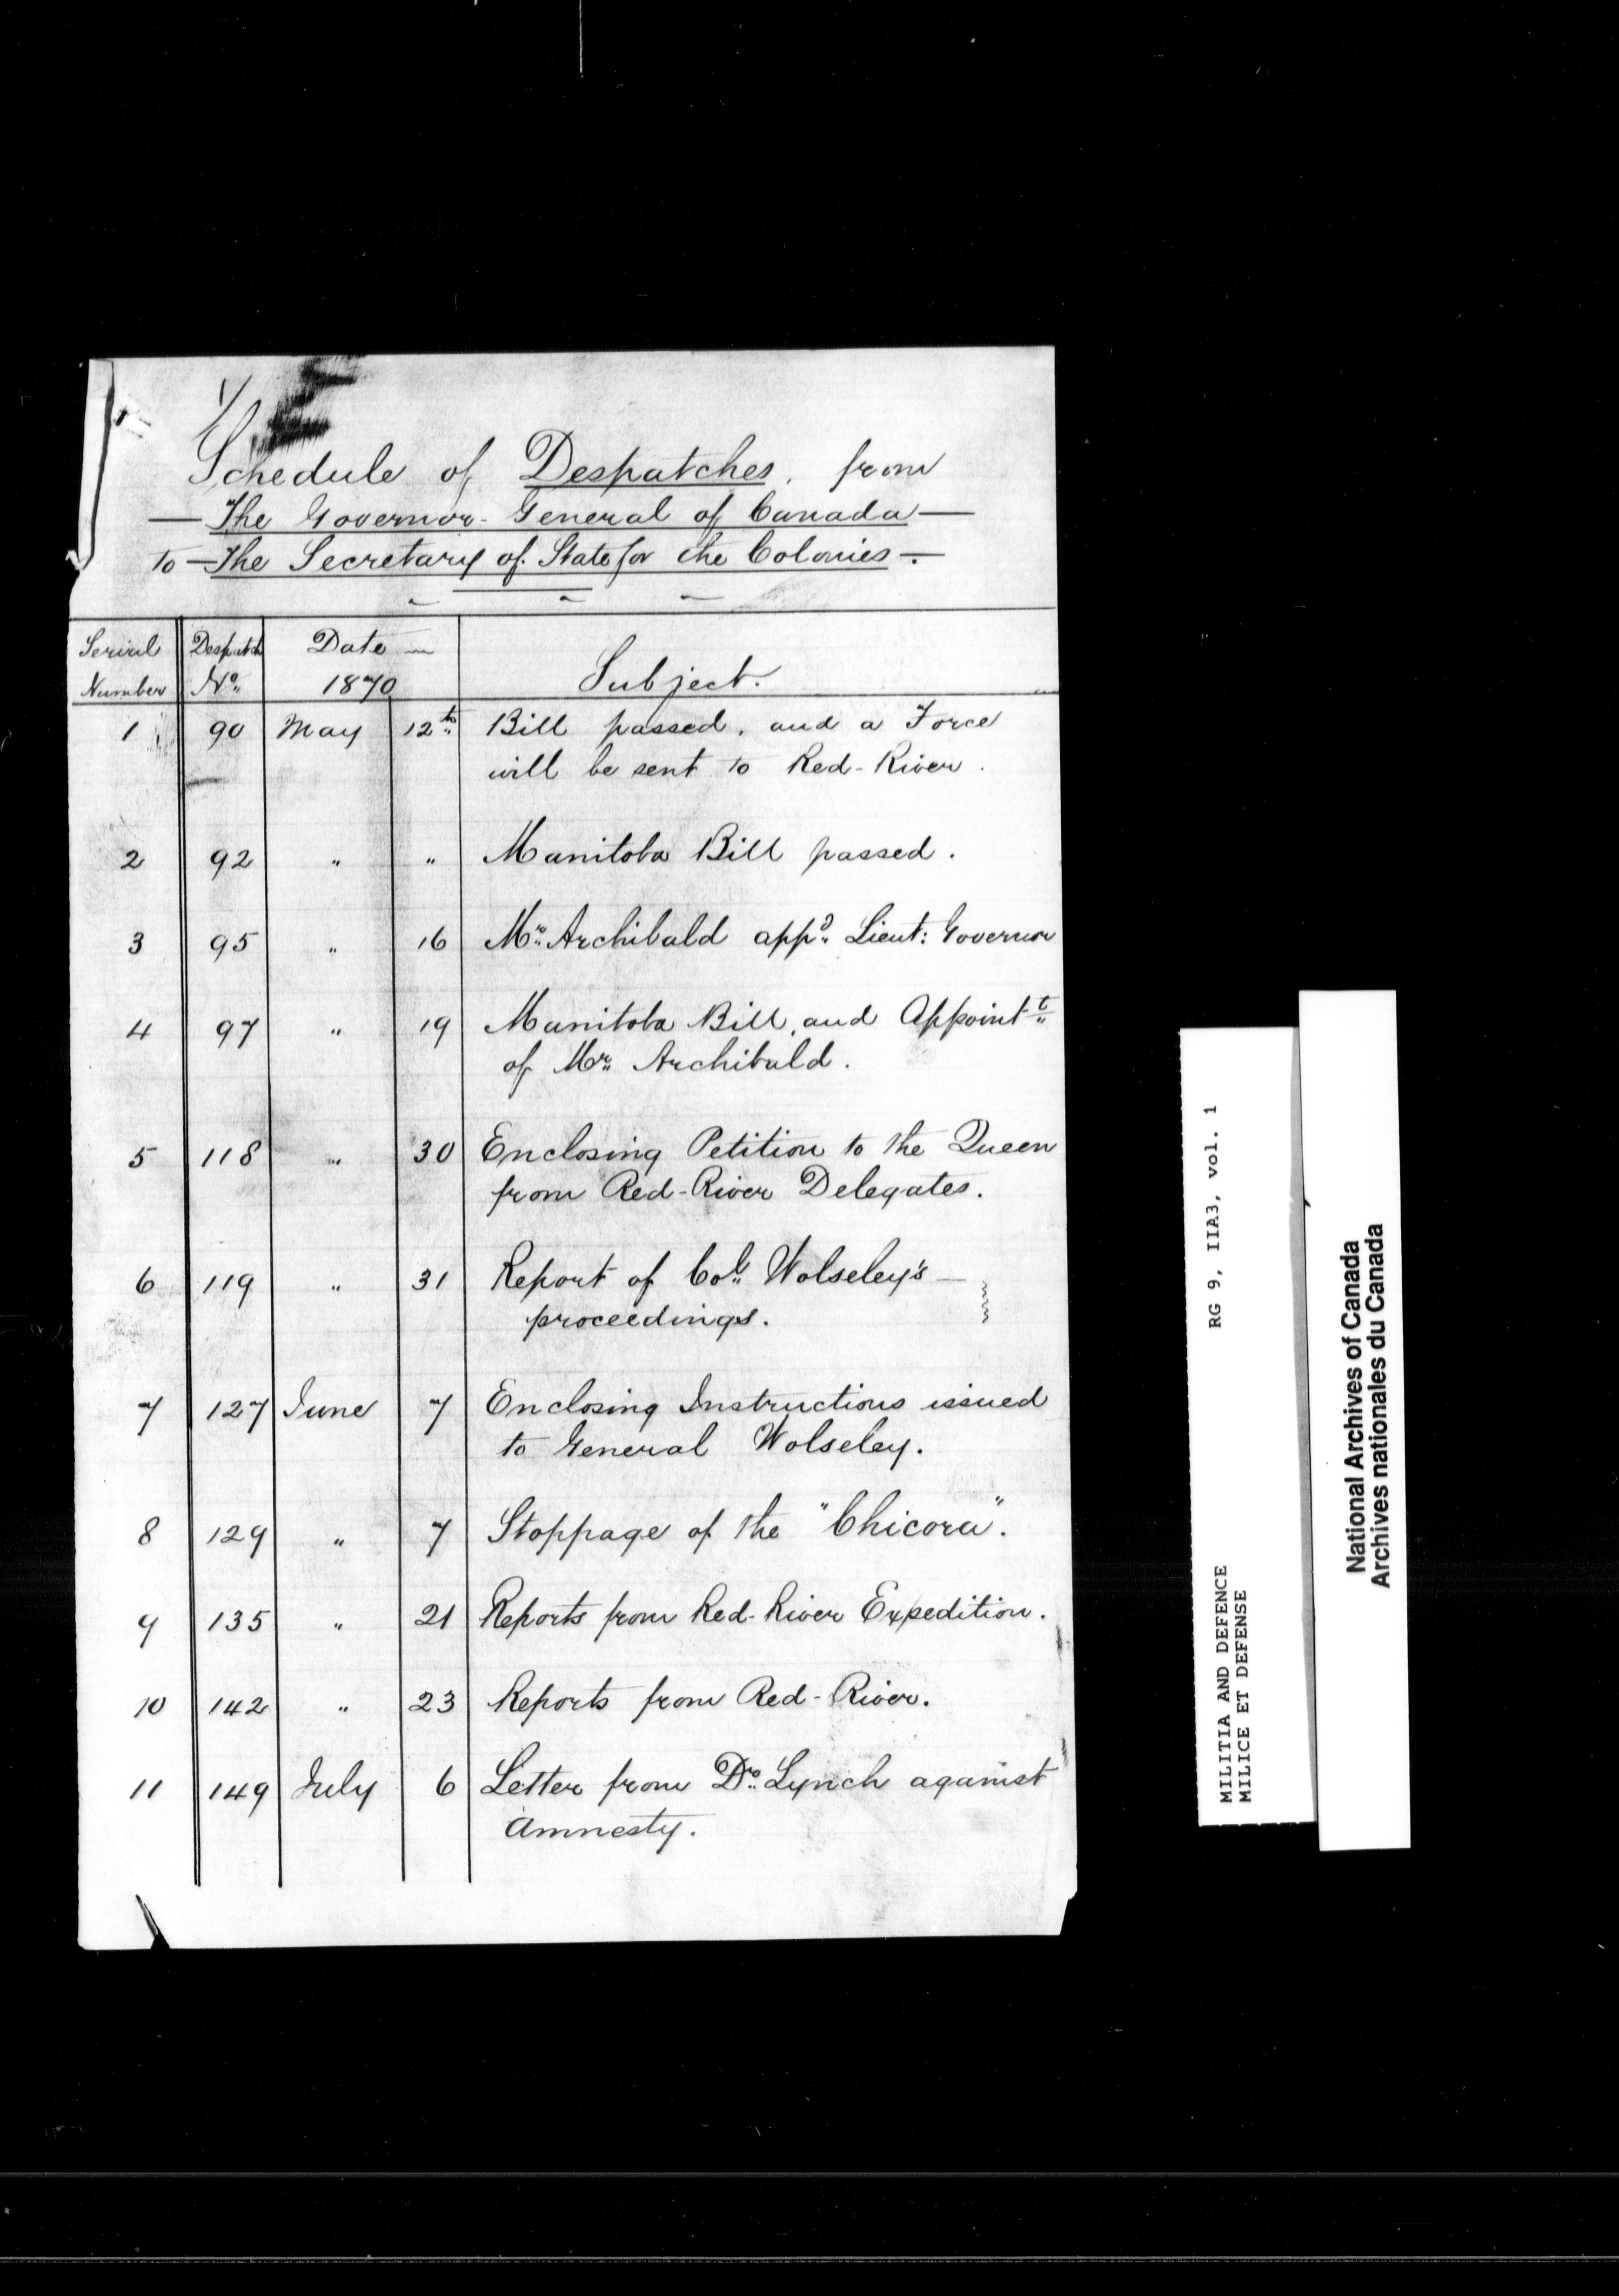 Schedule of Despatches, from
— The Governor-General of Canada —
to — The Secretary of State for the Colonies —.
Serial Number | Despatch No. | Date — 1870 | Subject.
1 | 90 | May | 12th | Bill passed, and a Force
will be sent to Red-River.
2 | 92 | " | " | Manitoba Bill passed.
3 | 95 | " | 16 | Mr. Archibald appd. Lieut: Governor
4 | 97 | " | 19 | Manitoba Bill, and Appointt.
of Mr. Archibald.
5 | 118 | " | 30 | Enclosing Petition to the Queen
from Red-River Delegates.
6 | 119 | " | 31 | Report of Col. Wolseley's —
proceedings.
7 | 127 | June | 7 | Enclosing Instructions issued
to General Wolseley.
8 | 129 | " | 7 | Stoppage of the "Chicora".
9 | 135 | " | 21 | Reports from Red-River Expedition.
10 | 142 | " | 23 | Reports from Red-River.
11 | 149 | July | 6 | Letter from Dr. Lynch against
Amnesty.
MILITIA AND DEFENCE RG 9, IIA3, vol. 1
MILICE ET DEFENSE
National Archives of Canada
Archives nationales du Canada